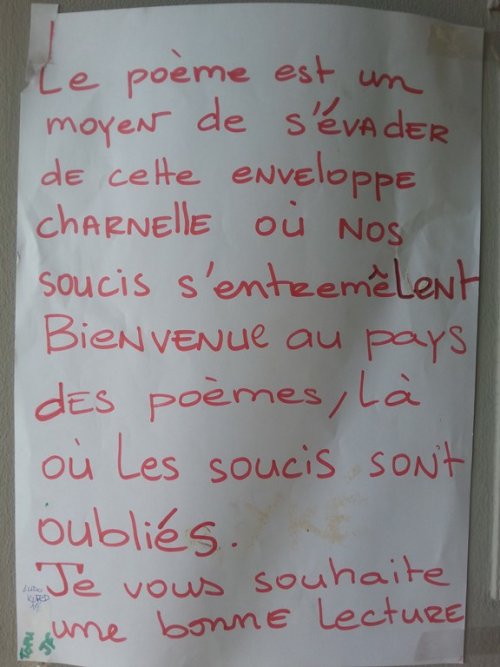 Le poème est un
moyen de s'évader
de cette enveloppe
charnelle où nos
soucis s'entremêlent
Bienvenue au pays
des poèmes, là
où les soucis sont
oubliés.
Je vous souhaite
une bonne lecture